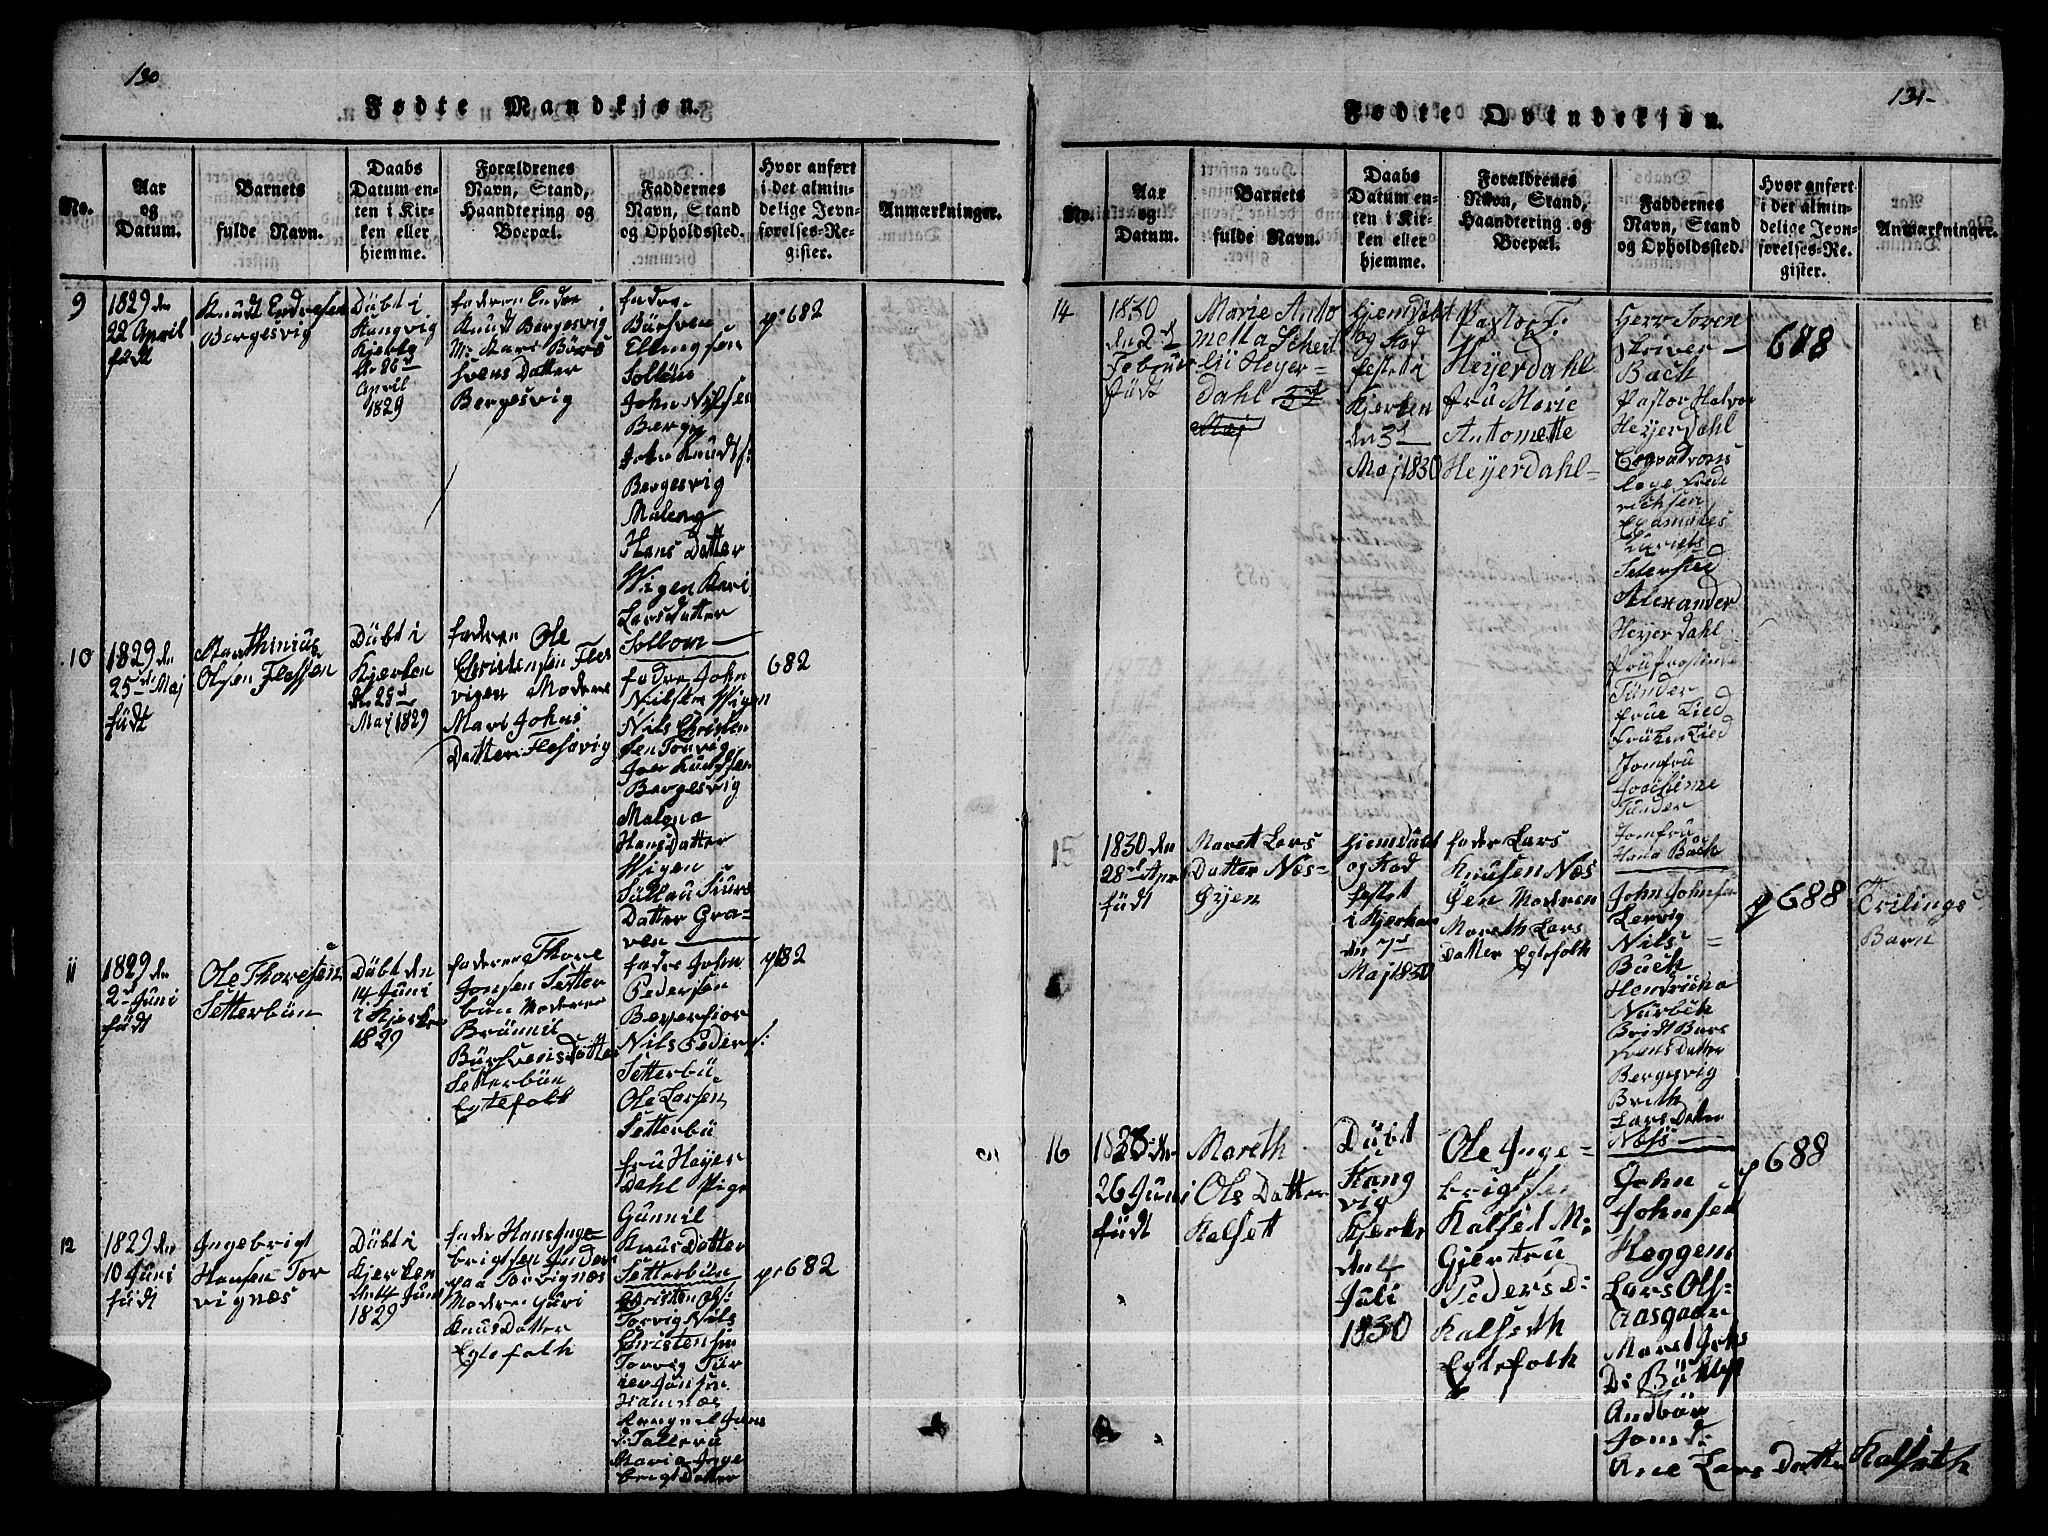 130
Fødte Mandkjøn.
No.
Aar
og
Datum.
Barnets
fulde Navn.
Daabs
Datum en-
ten i Kir-
ken eller
hjemme.
Forældrenes
Navn, Stand,
Haandtering og
Boepæl.
Faddernes
Navn, Stand
og Opholdssted.
Hvor anført
i det almin-
delige Jevn-
førelses-Re-
gister.
Anmærkninger.
9
1829 den
22 April
født
Knudt Endresen
Bergesvig
Døbt i
Stangvig
26
April
1829
faderen Endre
Knudt Bergesvig
M: Kari Børs
svens Datter
Bergesvig
fadre
Børsven
Ellingsen
Solem
John Nilsen
Berge
John Knudts:
Bergesvig
Maleng
Hans Datter
Wigen Kari
Larsdatter
Solbom
p 682
10
1829 den
25de Maj
født
Marthinius
Olsen
Døbt i
Kjerken
28
Maj 1829
faderen Ole
Christensen Fles
vigen Modere
Mari Johns
Datter Flesvig
fadre John
Nilsen Wigen
Nils Christen
sen Torvig
Knudsen
Bergesvig
Malena
Hansdatter
Wigen
Siurs
Datter Gra-
ven
682
11
1829 den
2d Juni
født
Ole Thoresen
Setterbøn
Døbt den
14 Juni
i Kjerken
1829
faderen Thore
Jonsen Setter
bøn Moderen
Brønnil
Børsvensdatter
Setterbøn
Egtefolk
fadre John
Pedersen
Beverfior
Nils Peders:
Setterbø
Ole Larsen
Setterbø
fru Heyer
Dahl Pige
Gunnil
Knus Datter
Setterbøn
p 82
12
1829 den
10 Juni
født
Ingebrigt
Hansen Tor
vignæs
Døbt i
Kjerken
14 Juni
1829
fader Hans Inge-
brigtsen Inder
paa Torvignæs
Moderen Guri
Knus Datter
Egtefolk
Christen Ols:
Torvig Nils
Christensen
Torvig
Jonsen
Hamnæs
Maria Inge
brigtDatter
p 682
131-
Fødte Qvindekjøn.
No.
Aar
og
Datum.
Barnets
fulde Navn.
Daabs
Datum en-
ten i Kir-
ken eller
hjemme.
Forældrenes
Navn, Stand,
Haandtering og
Boepæl.
Faddernes
Navn, Stand
og Opholdssted.
Hvor anført
i det almin-
delige Jevn-
førelses-Re-
gister.
Anmærkninger.
14
1830
den 2d
Februar
født
Marie Anto
netta
Heyer-
Dahl
Hjemdøbt
og Stad
festet i
Kjerken
den 3d
Maj 1830
Pastor F:
Heyerdahl
fru Marie
Antonette
Heyerdahl
Herr Soren
skriver
Bach
Pastor Halvor
Heyerdahl
Alexander
Heyerdahl
Tønder
frue Lied
frøken Lied
Jomfru
Joachime
Tønder
Jomfru
Hana Bach
688
15
1830 den
28d Apr
født
Maret Lars
Datter Næs-
Øyen
Hjemdøbt
og Stad
festet
i Kjerken
den 7d
Maj 1830
fader Lars
Knusen Næs
Øen Moderen
Mareth Lars
Datter Egtefolk
John Johnsen
Lervig
Nils
Bach
Hendricha
Nørbech
Bridt Bors
svens Datter
Bergesvig
Brith
Lars Datter
Næss
p 688
Tvilings
Barn
16
den
26 Juni
født
Mareth
Ols Datter
Kalsett
Døbt
Stang
vig
Kjerke
den 4
Juli
1830
Ole Inge-
brigtsen
Kalset M:
Gjertru
Peders D:
Kalseth
Egtefolk
John
Johnsen
Heggem
Lars Ols:
Aasgaar
Maret Johs
D:
Jons d:
Ane Lars Datter Kalseth
p 688